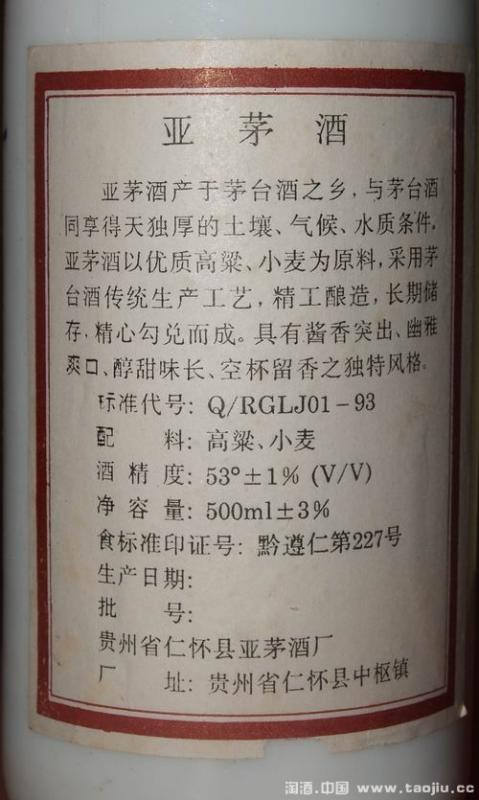 亚茅酒
亚茅酒产于茅台酒之乡,与茅台酒
同享得天独厚的土壤、气候、水质条件,
亚茅酒以优质高粱、小麦为原料,采用茅
台酒传统生产工艺,精工酿造,长期储
存,精心勾兑而成。具有酱香突出、幽雅
爽口、醇甜味长、空杯留香之独特风格。
标准代号: Q/RGLJ01-93
配 料: 高粱、小麦
酒精度: 53°±1% (V/V)
净容量: 500ml±3%
食标准印证号: 黔遵仁第227号
生产日期:
批 号:
贵州省仁怀县亚茅酒厂
厂 址: 贵州省仁怀县中枢镇
淘酒.中国 www.taojiu.cc